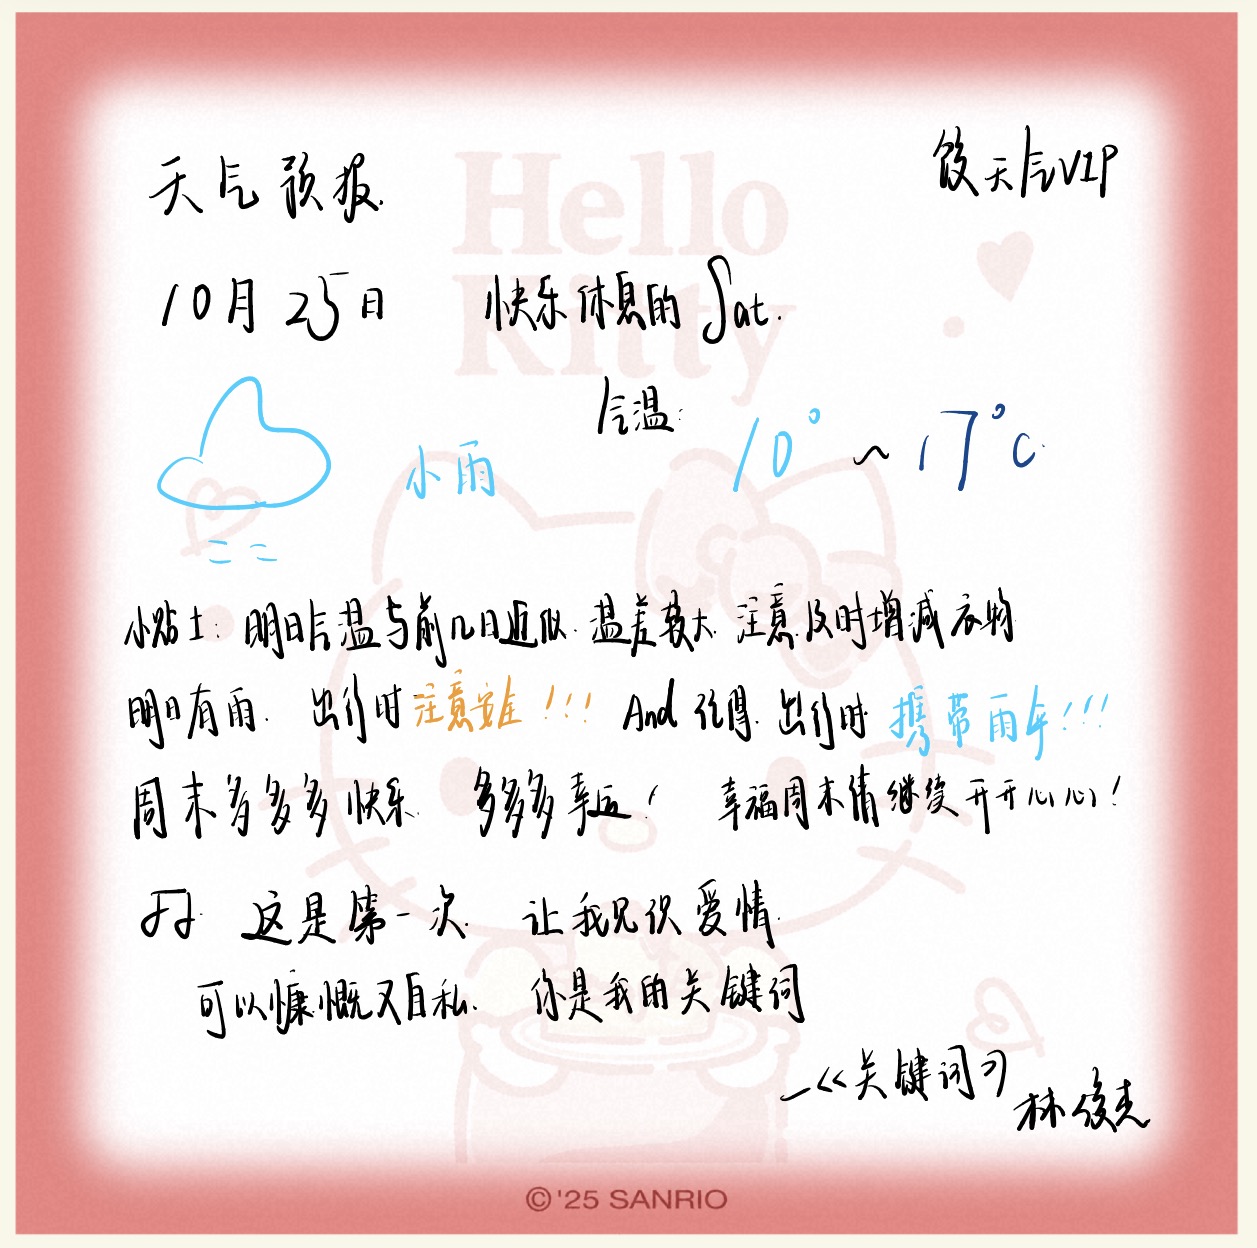 天气预报.
天气VIP
Hello
Kitty
10月25日 快乐休息的 Sat.
气温:
10° ~ 17°C.
小雨
小贴士: 明日气温与前几日近似. 温差较大. 注意及时增减衣物
明日有雨. 出行时注意安全!!! And 记得. 出行时 携带雨伞!!!
周末多多多快乐. 多多多幸运! 幸福周末请继续开开心心!
这是第一次. 让我见识爱情.
可以慷慨又自私. 你是我的关键词
—《关键词》林俊杰
©'25 SANRIO